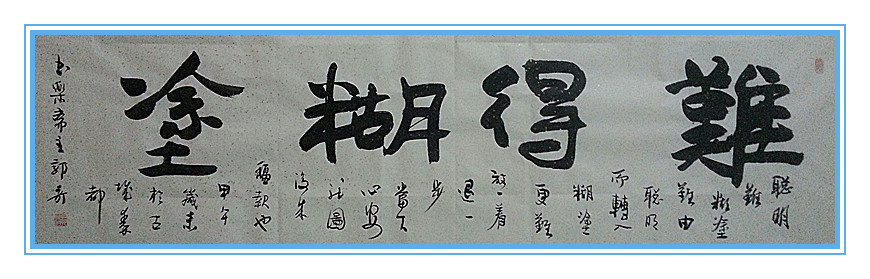 難得糊塗
聰明
難
糊塗
難由
聰明
而轉入
糊塗
更難
放一着
退一
步
當下
心安
非圖
後來
福報也
甲午
歲末
於古
都
齋主郭